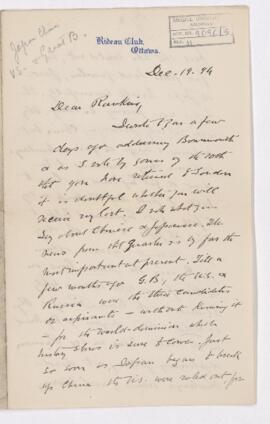 Japan China
US. & Great B.
Rideau Club,
Ottawa.
Dec. 19. 94
Dear Rankin,
I wrote you a few
days ago, addressing Bournemouth
& as I note by yours of the 10th
that you have returned to London
it is doubtful whether you will
receive my last. I note what you
say about Chinese & Japanese. The
news from that Quarter is by far the
most important at present. Till a
few months ago G.B., the U.S. &
Russia were the three candidates
or aspirants - without knowing it
- for the world-dominion which
history shows is sure to come. Just
so soon as Japan began to break
up China the U.S. were ruled out for